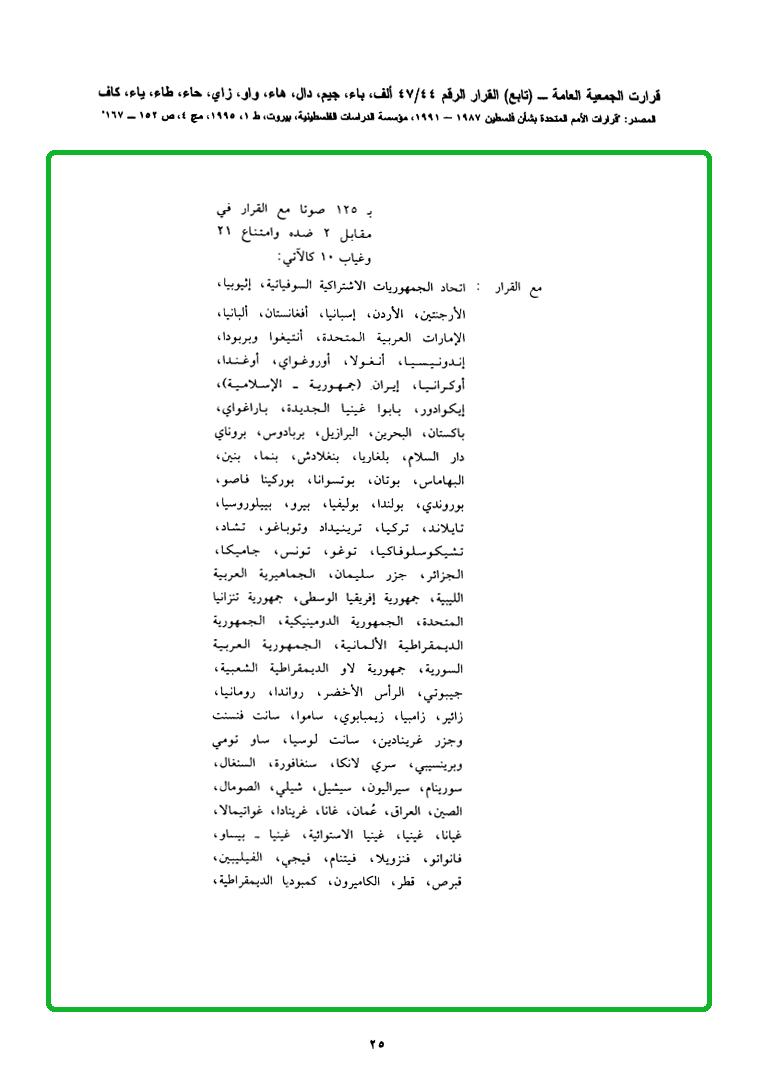 قرارت الجمعية العامة ــ (تابع) القرار الرقم ٤٧/٤٤ ألف، باء، جيم، دال، هاء، واو، زاي، حاء، طاء، ياء، كاف
المصدر: "قرارات الأمم المتحدة بشأن فلسطين ١٩٨٧ — ١٩٩١، مؤسسة الدراسات الفلسطينية، بيروت، ط ١، ١٩٩٥، مج ٤، ص ١٥٢ ــ ١٦٧"
بـ ١٢٥ صوتا مع القرار في
مقابل ٢ ضده وامتناع ٢١
وغياب ١٠ كالآتي:
مع القرار : اتحاد الجمهوريات الاشتراكية السوفياتية، إثيوبيا،
الأرجنتين، الأردن، إسبانيا، أفغانستان، ألبانيا،
الإمارات العربية المتحدة، أنتيغوا وبربودا،
إندونيسيا، أنغولا، أوروغواي، أوغندا،
أوكرانيا، إيران (جمهورية ـ الإسلامية)،
إيكوادور، بابوا غينيا الجديدة، باراغواي،
باكستان، البحرين، البرازيل، بربادوس، بروناي
دار السلام، بلغاريا، بنغلادش، بنما، بنين،
البهاماس، بوتان، بوتسوانا، بوركينا فاصو،
بوروندي، بولندا، بوليفيا، بيرو، بييلوروسيا،
تايلاند، تركيا، ترينيداد وتوباغو، تشاد،
تشيكوسلوفاكيا، توغو، تونس، جاميكا،
الجزائر، جزر سليمان، الجماهيرية العربية
الليبية، جمهورية إفريقيا الوسطى، جمهورية تنزانيا
المتحدة، الجمهورية الدومينيكية، الجمهورية
الديمقراطية الألمانية، الجمهورية العربية
السورية، جمهورية لاو الديمقراطية الشعبية،
جيبوتي، الرأس الأخضر، رواندا، رومانيا،
زائير، زامبيا، زيمبابوي، ساموا، سانت فنسنت
وجزر غرينادين، سانت لوسيا، ساو تومي
وبرينسيبي، سري لانكا، سنغافورة، السنغال،
سورينام، سيراليون، سيشيل، شيلي، الصومال،
الصين، العراق، عُمان، غانا، غرينادا، غواتيمالا،
غيانا، غينيا، غينيا الاستوائية، غينيا ـ بيساو،
فانواتو، فنزويلا، فيتنام، فيجي، الفيليبين،
قبرص، قطر، الكاميرون، كمبوديا الديمقراطية،
٢٥